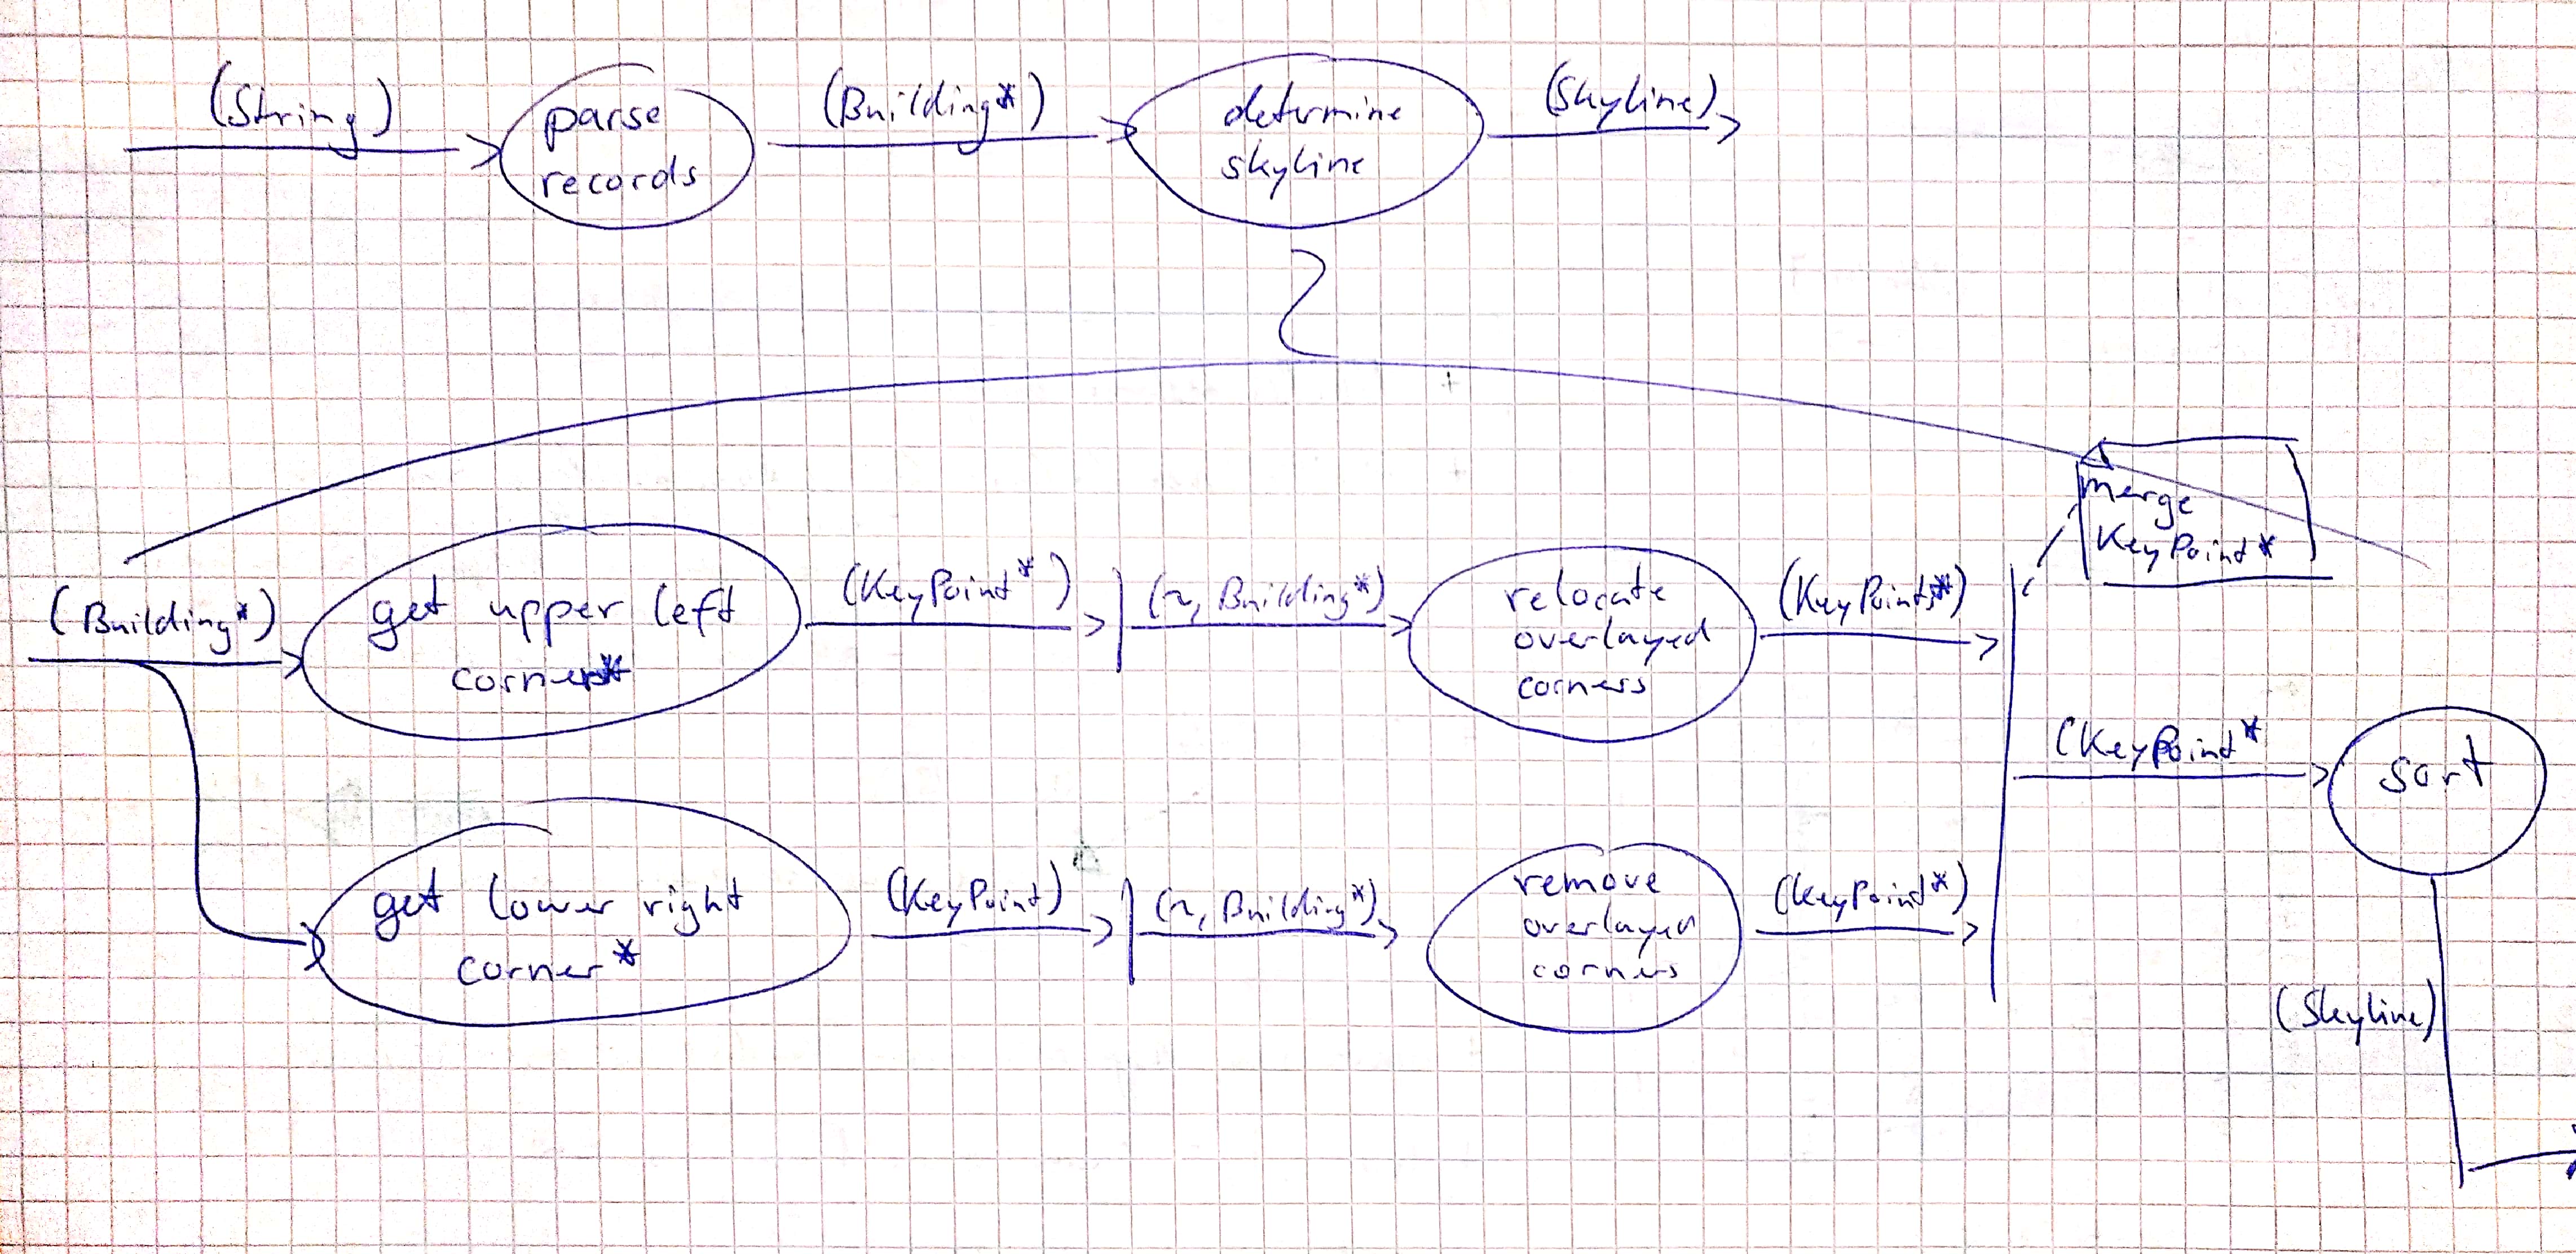 (String)
parse
records
(Building*)
determine
skyline
(Skyline)
merge
KeyPoint*
(Building*)
get upper left
corner*
(KeyPoint*)
(~, Building*)
relocate
overlayed
corners
(KeyPoint*)
(KeyPoint*
sort
get lower right
corner*
(KeyPoint)
(~, Building*)
remove
overlayed
corners
(KeyPoint*)
(Skyline)